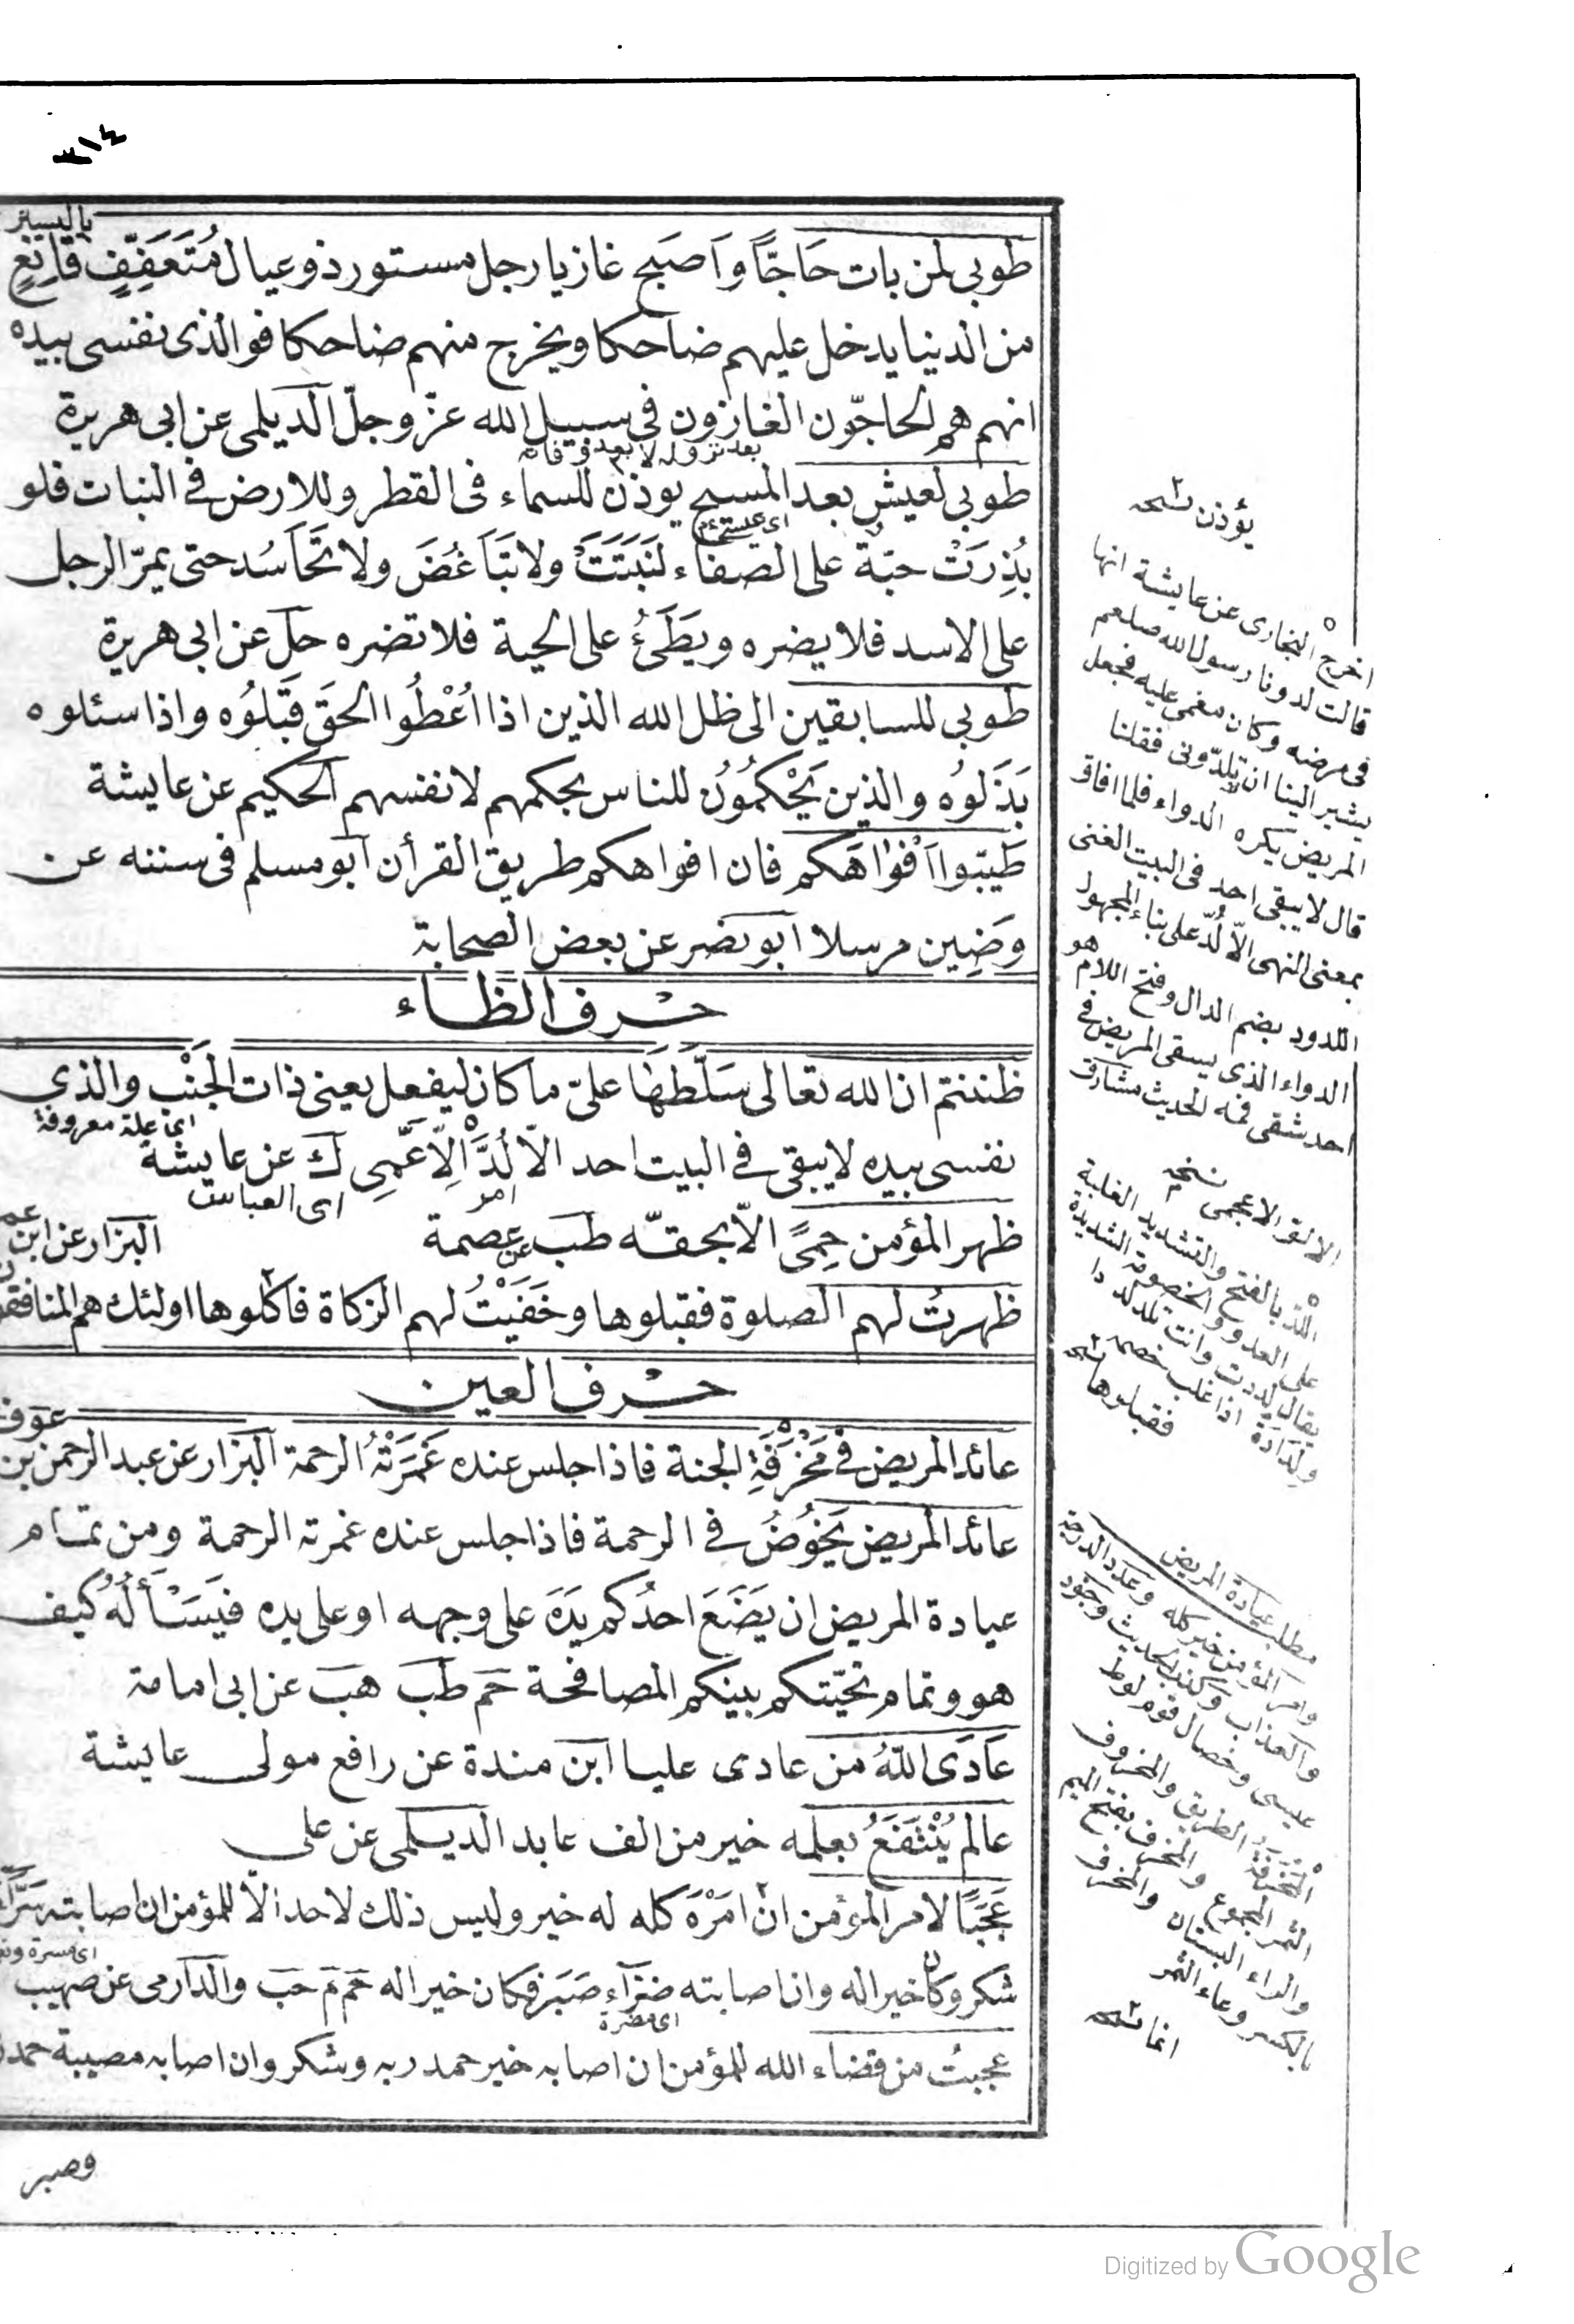 ٣١٤
باليسير
طوبى لمن بات حَاجًّا وَاَصبَح غازيا رجل مستور ذو عيال مُتَعَفِّفٍ قَانِعٍ
من الدنيا يدخل عليهم ضاحكا ويخرج منهم ضاحكا فوالذى نفسى بيده
انهم هم الحاجّون الغازون فى سبيل الله عزّ وجلّ الديلمى عن ابى هريرة
بعد نزوله لا بعد وفاته
طوبى لعيش بعد المسيح يوذن للسماء فى القطر وللارض فى النبات فلو
اى عيسى
بُذِرَتْ حبّة على الصفاء لَنَبَتَتْ ولا تَبَاغُضَ ولا تَحَاسُد حتى يمرّ الرجل
على الاسد فلا يضره ويَطَئُ على الحية فلا تضره حل عن ابى هريرة
طوبى للسابقين الى ظل الله الذين اذا اُعْطُوا الحقَ قَبَلُوُه واذا سئلوه
بَذَلوُه والذين يَحْكُمُوُن للناس بحكمهم لانفسهم الحكيم عن عايشة
طَيّبوا اَفْوٰاهَكم فان افواهكم طريق القرأن ابو مسلم فى سننه عن
وَضِين مرسلا ابو نصر عن بعض الصحابة
حرف الظاء
ظننتم ان الله تعالى سَلَّطَهَا علىّ ما كان ليفعل يعنى ذات الجَنْبِ والذى
اى علة معروفة
نفسى بيده لا يبقى فى البيت احد الّا لُدَّ اِلّا عَمِّى ك عن عايشة
اى العباس
ظهر المؤمن حِمًى الّا بحقّه طب عن عصمة
البزار عن ابن عمر
ظهرت لهم الصلوة فقبلوها وخَفَيَتْ لهم الزكاة فاكلوها اولئك هم المنافقون
حرف العين
عوف
عائد المريض فى مَخْرَفَةِ الجنة فاذا جلس عنده غَمَرَتْهُ الرحمة البزار عن عبد الرحمن بن
عائد المريض يَخُوُضُ فى الرحمة فاذا جلس عنده غمرته الرحمة ومن تمام
عيادة المريض ان يَضَعَ احدُكم يَدَهَ على وجهه او على يده فيَسَئَألُهُ كيف
هو وتمام تحيّتكم بينكم المصافحة حم طب هب عن ابى امامة
عَادَى اللّٰهُ من عادى عليا ابن مندة عن رافع مولى عايشة
عالم يُنْتَفَعُ بعلمه خير من الف عابد الديلمى عن على
عَجَبًا لامر المؤمن انّ اَمْرَهُ كله له خير وليس ذلك لاحد الّا للمؤمن ان اصابته سَرَّاءُ
اى مسرة
شكر وكان خيرا له وان اصابته ضرّاء صَبَر فكان خيرا له حم م حب والدارمى عن صهيب
اى مضرة
عجبتُ من قضاء الله للمؤمن ان اصابه خير حمد ربه وشكر وان اصابه مصيبة حمد
وصبر
يؤذن نسخه
اخرج البخارى عن عايشة انها
قالت لدونا رسول الله صلعم
فى مرضه وكان مغمى عليه فجعل
يشير الينا ان تلدّونى فقلنا
المريض يكره الدواء فلما افاق
قال لا يبقى احد فى البيت الغنى
بمعنى النهى الّا لُدّ على بناء المجهول
اللدود بضم الدال وفتح اللام هو
الدواء الذى يسقى المريض فى
احد شقى فمه الحديث مشارق
اللدّ بالفتح والتشديد الغلبة
على العدو والخصومة الشديدة
يقال لددت وانت تلد لدا
ولَدَادَة اذا غلب خصمه
فقبلوها نسخه
مطلب عيادة المريض
وامر المؤمن خير كله وعدد الدرجة
والعذاب وكنذ الحديث وجود
عيسى وخصال قوم لوط
المَخْرَفَةُ الطريق والمخروف
الثمر المجموع والمخرف بفتح الميم
والراء البستان والمخرف
بالكسر وعاء الثمر
انما نسخه
Digitized by Google